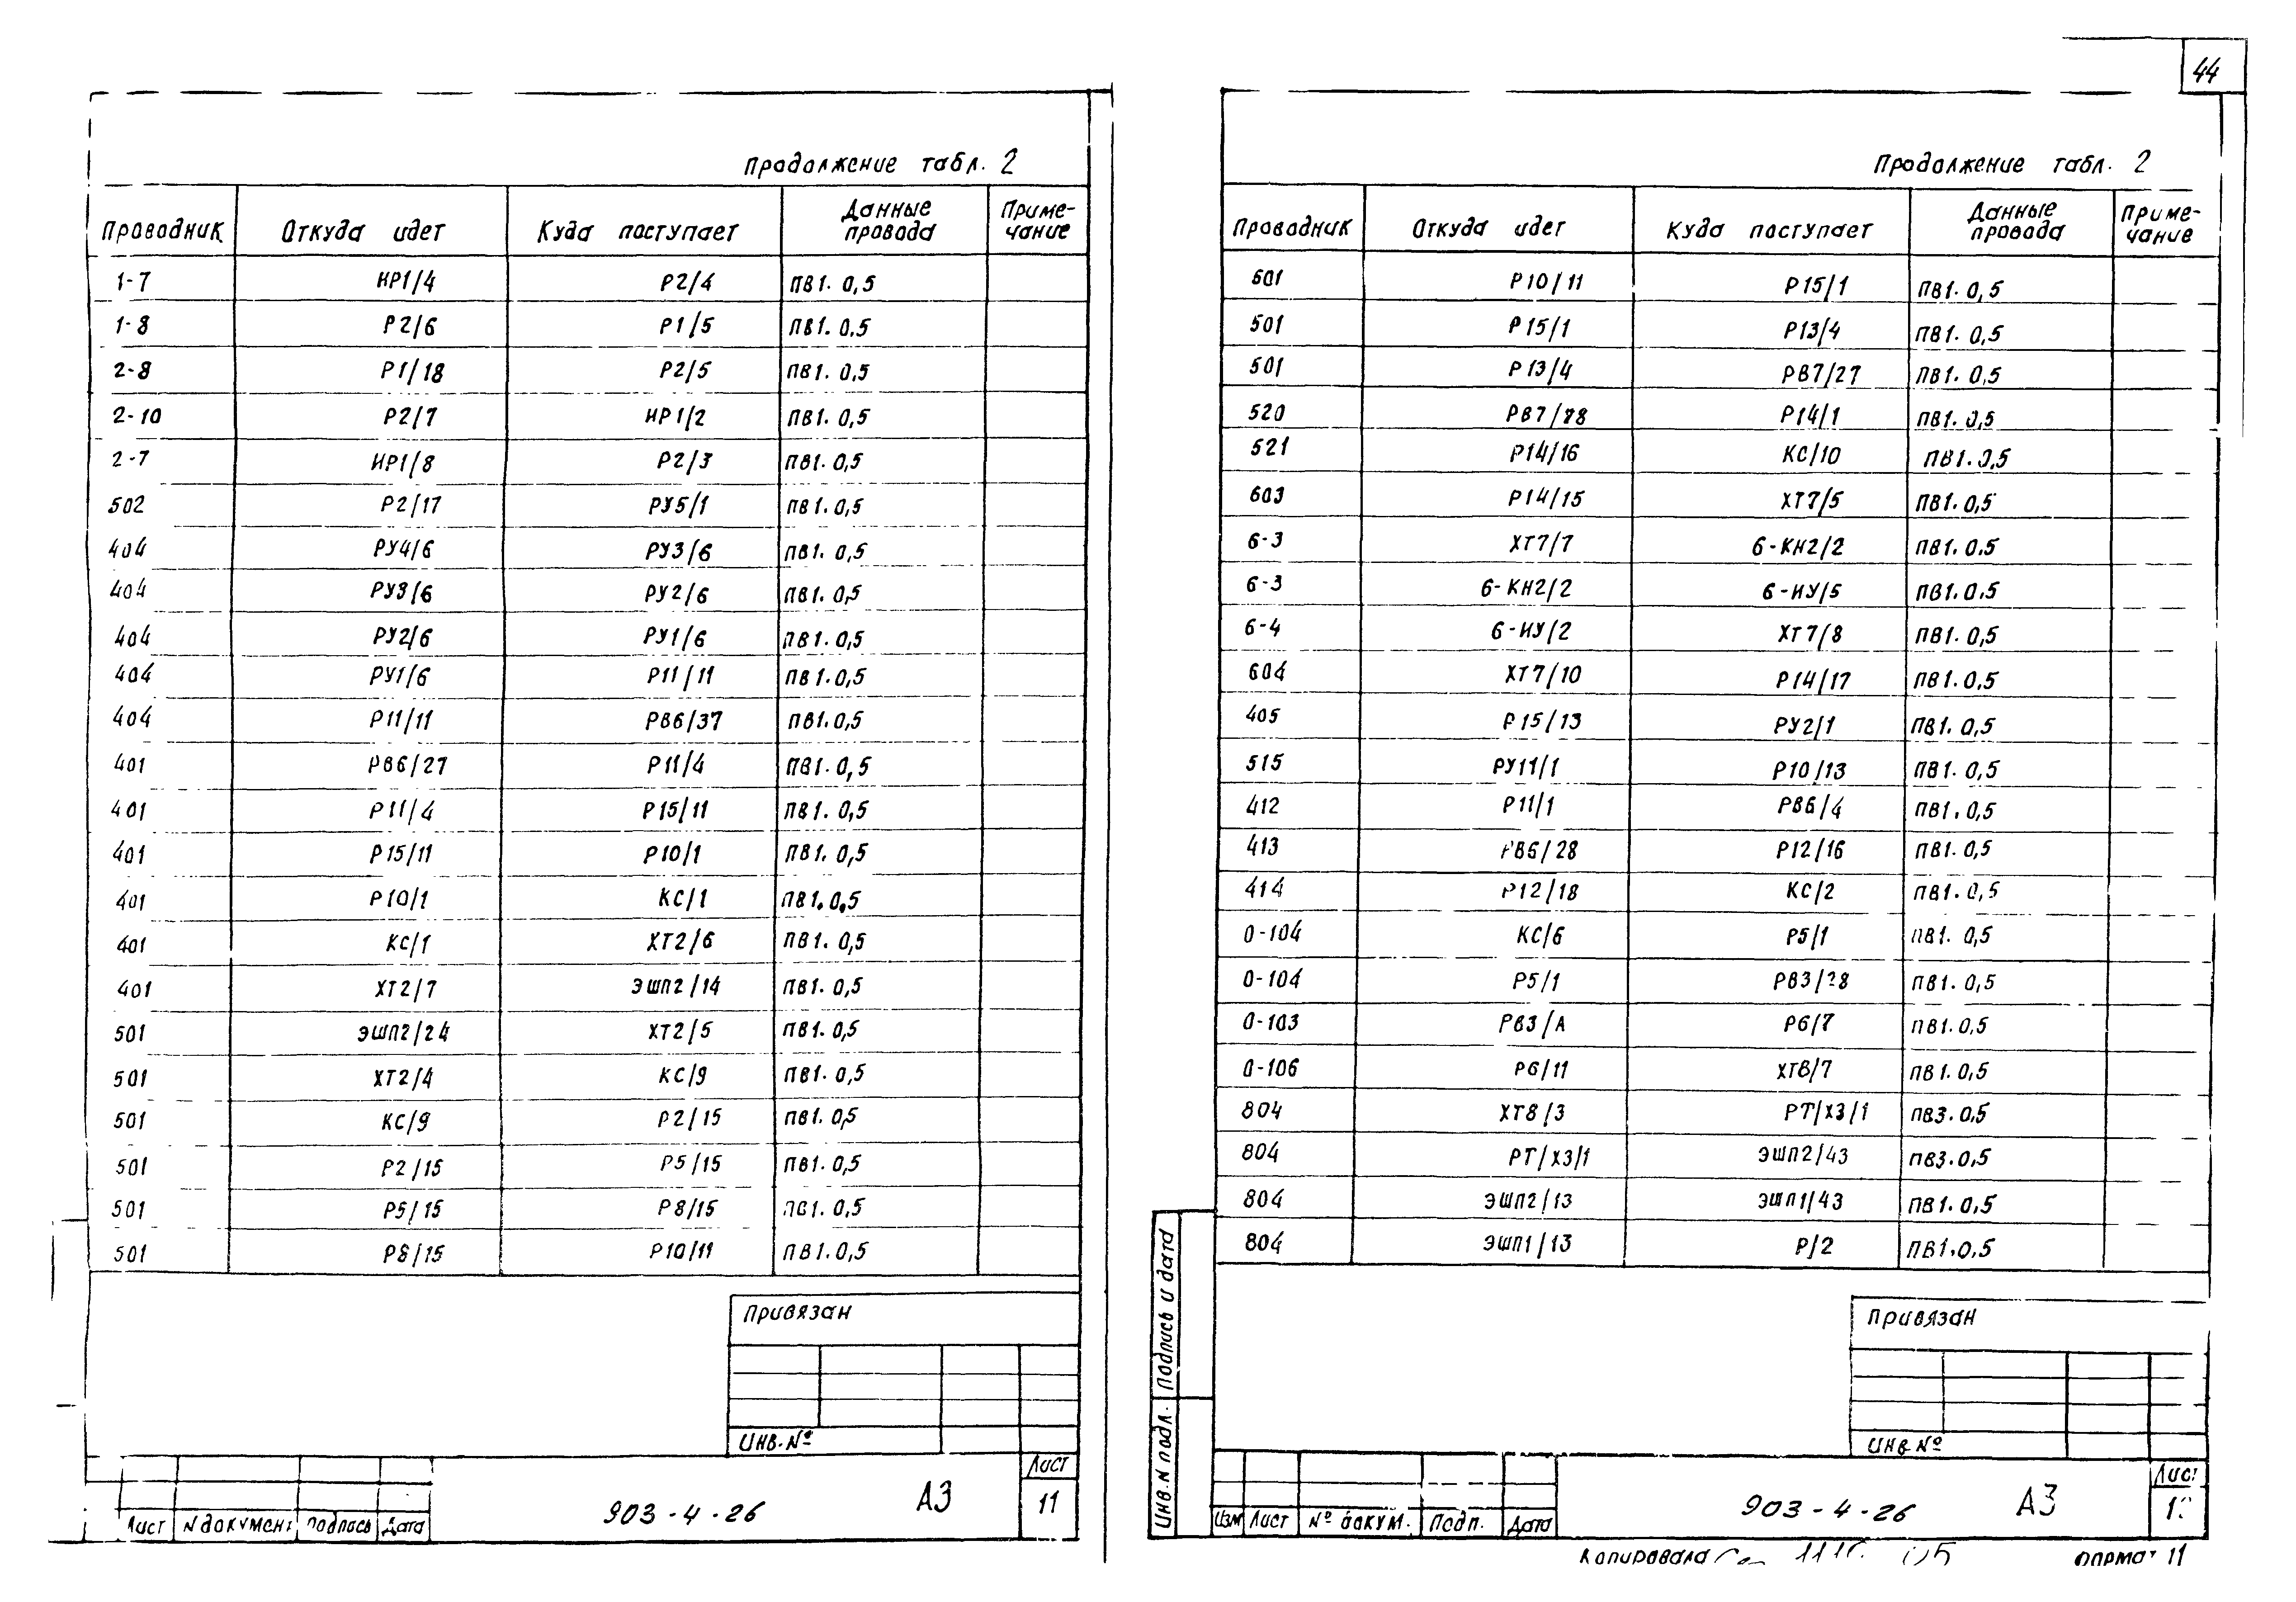 44
Продолжение табл. 2
Проводник Откуда идет Куда поступает Данные провода Приме-чание
1-7 ИР1/4 Р2/4 ПВ1. 0,5
1-8 Р2/6 Р1/5 ПВ1. 0,5
2-8 Р1/18 Р2/5 ПВ1. 0,5
2-10 Р2/7 ИР1/2 ПВ1. 0,5
2-7 ИР1/8 Р2/3 ПВ1. 0,5
502 Р2/17 РУ5/1 ПВ1. 0,5
404 РУ4/6 РУ3/6 ПВ1. 0,5
404 РУ3/6 РУ2/6 ПВ1. 0,5
404 РУ2/6 РУ1/6 ПВ1. 0,5
404 РУ1/6 Р11/11 ПВ1. 0,5
404 Р11/11 РВ6/37 ПВ1. 0,5
401 РВ6/27 Р11/4 ПВ1. 0,5
401 Р11/4 Р15/11 ПВ1. 0,5
401 Р15/11 Р10/1 ПВ1. 0,5
401 Р10/1 КС/1 ПВ1. 0,5
401 КС/1 ХТ2/6 ПВ1. 0,5
401 ХТ2/7 ЭШП2/14 ПВ1. 0,5
501 ЭШП2/24 ХТ2/5 ПВ1. 0,5
501 ХТ2/4 КС/9 ПВ1. 0,5
501 КС/9 Р2/15 ПВ1. 0,5
501 Р2/15 Р5/15 ПВ1. 0,5
501 Р5/15 Р8/15 ПВ1. 0,5
501 Р8/15 Р10/11 ПВ1. 0,5
Привязан
Инв.№
Лист N докумен подпись Дата
903-4-26
А3
Лист
11
Продолжение табл. 2
Проводник Откуда идет Куда поступает Данные провода Приме-чание
501 Р10/11 Р15/1 ПВ1. 0,5
501 Р15/1 Р13/4 ПВ1. 0,5
501 Р13/4 РВ7/27 ПВ1. 0,5
520 РВ7/28 Р14/1 ПВ1. 0,5
521 Р14/16 КС/10 ПВ1. 0,5
603 Р14/15 ХТ7/5 ПВ1. 0,5
6-3 ХТ7/7 6-КН2/2 ПВ1. 0,5
6-3 6-КН2/2 6-ИУ/5 ПВ1. 0,5
6-4 6-ИУ/2 ХТ7/8 ПВ1. 0,5
604 ХТ7/10 Р14/17 ПВ1. 0,5
405 Р15/13 РУ2/1 ПВ1. 0,5
515 РУ11/1 Р10/13 ПВ1. 0,5
412 Р11/1 РВ6/4 ПВ1. 0,5
413 РВ6/28 Р12/16 ПВ1. 0,5
414 Р12/18 КС/2 ПВ1. 0,5
0-104 КС/6 Р5/1 ПВ1. 0,5
0-104 Р5/1 РВ3/28 ПВ1. 0,5
0-103 РВ3/А Р6/7 ПВ1. 0,5
0-106 Р6/11 ХТ8/7 ПВ1. 0,5
804 ХТ8/3 РТ/Х3/1 ПВ3. 0,5
804 РТ/Х3/1 ЭШП2/43 ПВ3. 0,5
804 ЭШП2/13 ЭШП1/43 ПВ1. 0,5
804 ЭШП1/13 Р/2 ПВ1. 0,5
Подпись и дата
Инв.N подл.
Привязан
Инв №
Изм Лист № докум. Подп. Дата
903-4-26
А3
Лист
Копировала
Формат 11